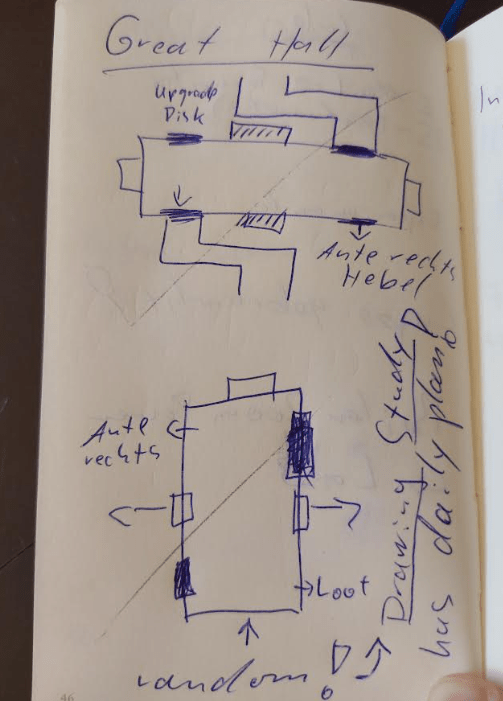 Great Hall
Upgrade
Disk
Ante rechts
Hebel
Ante
rechts
Loot
random!
Drawing Study
has daily plan!
In
46